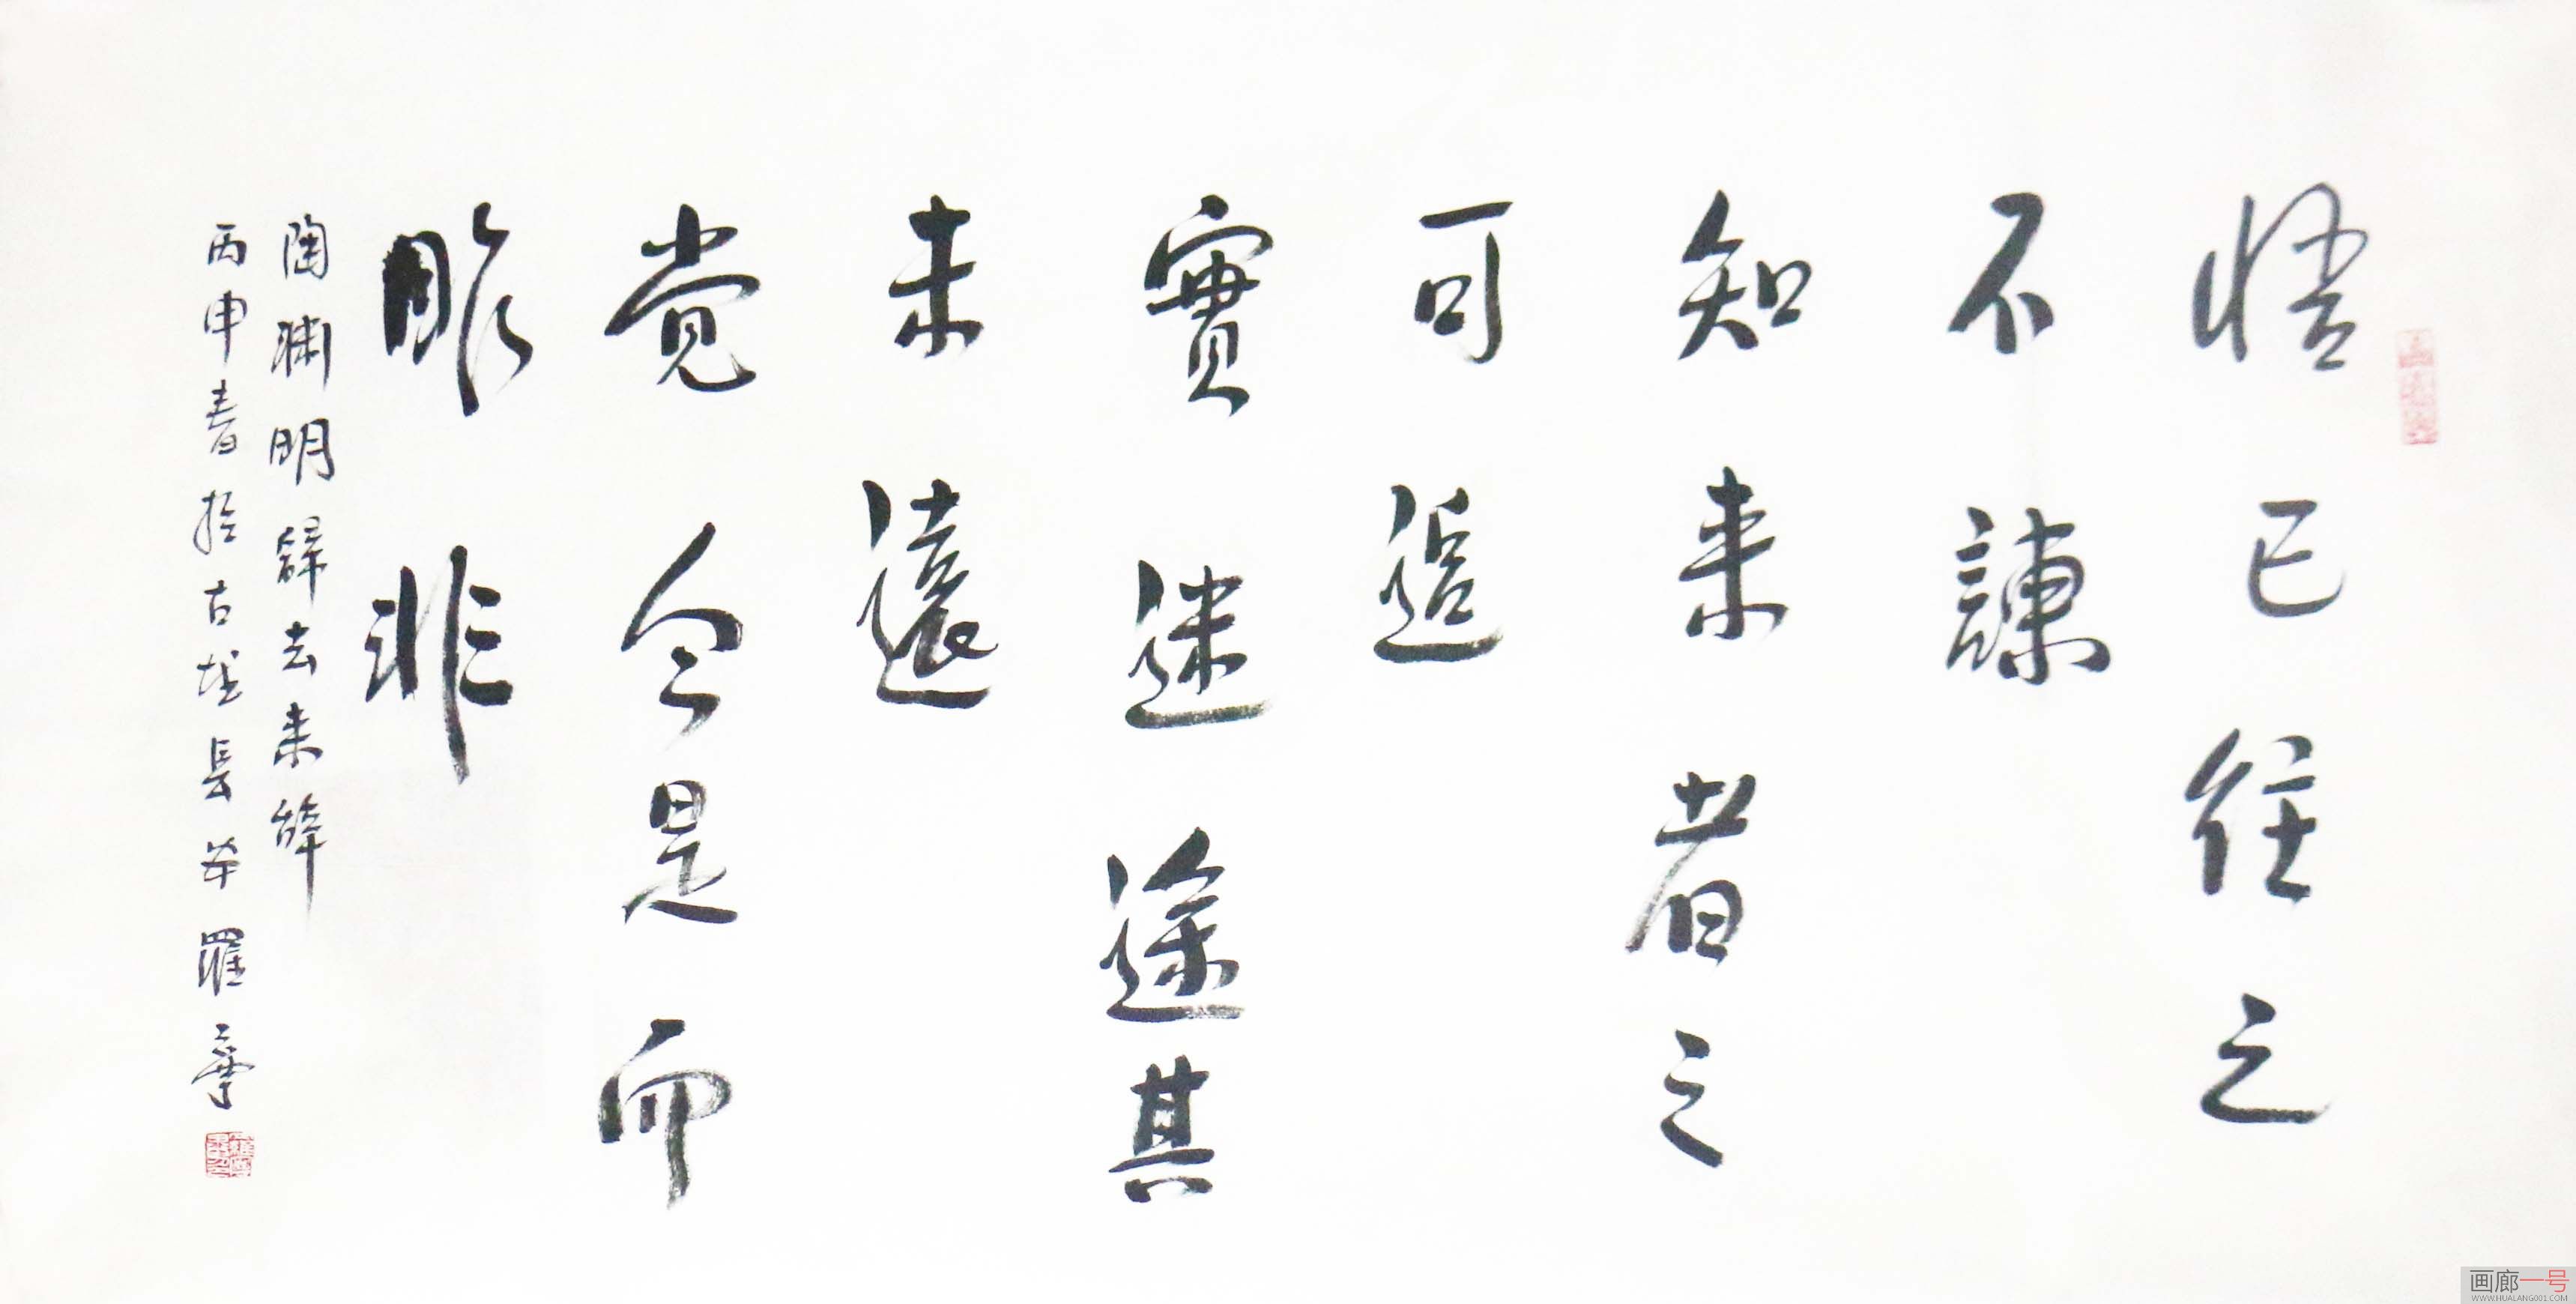 悟已往之
不諫
知来者之
可追
實迷途其
未遠
觉今是而
昨非
陶渊明歸去来辞
丙申春於古城長安羅寧
画廊一号
WWW.HUALANG001.COM